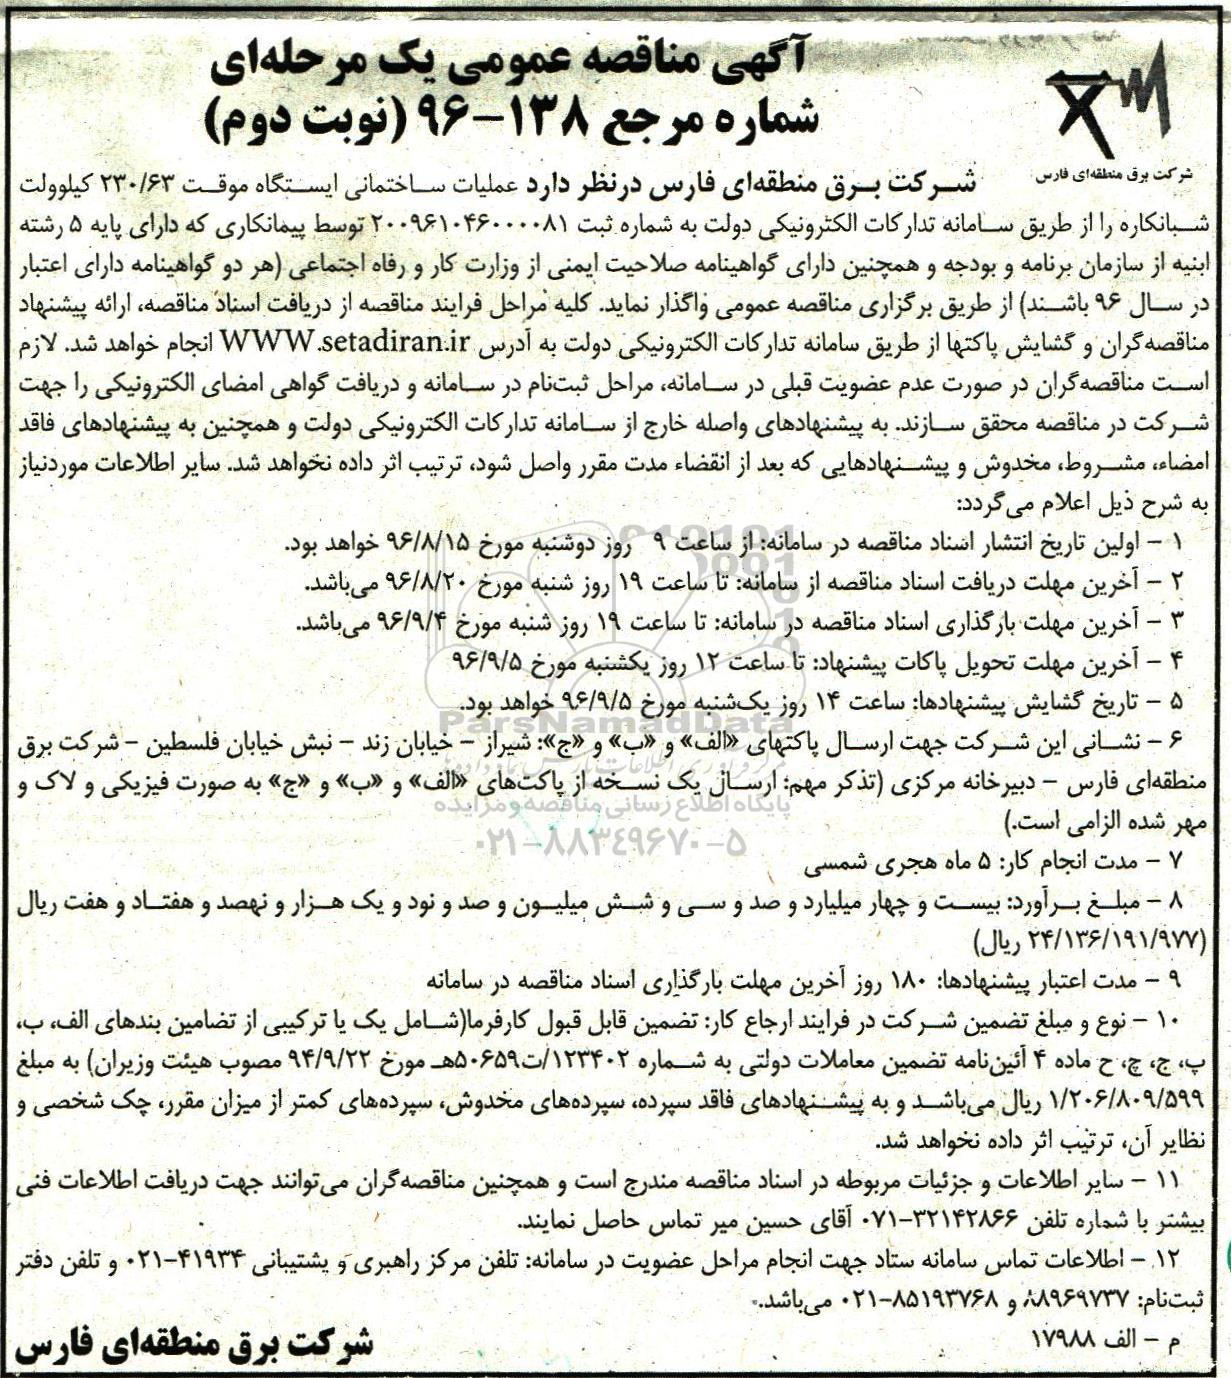 آگهی مناقصه عمومی یک مرحله‌ای
شماره مرجع ۱۳۸-۹۶ (نوبت دوم)
شرکت برق منطقه‌ای فارس
شرکت برق منطقه‌ای فارس درنظر دارد عملیات ساختمانی ایستگاه موقت ۲۳۰/۶۳ کیلوولت
شبانکاره را از طریق سامانه تدارکات الکترونیکی دولت به شماره ثبت ۲۰۰۹۶۱۰۴۶۰۰۰۰۸۱ توسط پیمانکاری که دارای پایه ۵ رشته
ابنیه از سازمان برنامه و بودجه و همچنین دارای گواهینامه صلاحیت ایمنی از وزارت کار و رفاه اجتماعی (هر دو گواهینامه دارای اعتبار
در سال ۹۶ باشند) از طریق برگزاری مناقصه عمومی واگذار نماید. کلیه مراحل فرایند مناقصه از دریافت اسناد مناقصه، ارائه پیشنهاد
مناقصه‌گران و گشایش پاکتها از طریق سامانه تدارکات الکترونیکی دولت به آدرس WWW.setadiran.ir انجام خواهد شد. لازم
است مناقصه‌گران در صورت عدم عضویت قبلی در سامانه، مراحل ثبت‌نام در سامانه و دریافت گواهی امضای الکترونیکی را جهت
شرکت در مناقصه محقق سازند. به پیشنهادهای واصله خارج از سامانه تدارکات الکترونیکی دولت و همچنین به پیشنهادهای فاقد
امضاء، مشروط، مخدوش و پیشنهادهایی که بعد از انقضاء مدت مقرر واصل شود، ترتیب اثر داده نخواهد شد. سایر اطلاعات موردنیاز
به شرح ذیل اعلام می‌گردد:
۱ - اولین تاریخ انتشار اسناد مناقصه در سامانه: از ساعت ۹ روز دوشنبه مورخ ۹۶/۸/۱۵ خواهد بود.
۲ - آخرین مهلت دریافت اسناد مناقصه از سامانه: تا ساعت ۱۹ روز شنبه مورخ ۹۶/۸/۲۰ می‌باشد.
۳ - آخرین مهلت بارگذاری اسناد مناقصه در سامانه: تا ساعت ۱۹ روز شنبه مورخ ۹۶/۹/۴ می‌باشد.
۴ - آخرین مهلت تحویل پاکات پیشنهاد: تا ساعت ۱۲ روز یکشنبه مورخ ۹۶/۹/۵
۵ - تاریخ گشایش پیشنهادها: ساعت ۱۴ روز یک‌شنبه مورخ ۹۶/۹/۵ خواهد بود.
ParsNamadData
۶ - نشانی این شرکت جهت ارسال پاکتهای «الف» و «ب» و «ج»: شیراز - خیابان زند - نبش خیابان فلسطین - شرکت برق
منطقه‌ای فارس - دبیرخانه مرکزی (تذکر مهم: ارسال یک نسخه از پاکت‌های «الف» و «ب» و «ج» به صورت فیزیکی و لاک و
پایگاه اطلاع رسانی مناقصه و مزایده
مهر شده الزامی است.)
۰۲۱-۸۸۳۴۹۶۷۰-۵
۷ - مدت انجام کار: ۵ ماه هجری شمسی
۸ - مبلغ برآورد: بیست و چهار میلیارد و صد و سی و شش میلیون و صد و نود و یک هزار و نهصد و هفتاد و هفت ریال
(۲۴/۱۳۶/۱۹۱/۹۷۷ ریال)
۹ - مدت اعتبار پیشنهادها: ۱۸۰ روز آخرین مهلت بارگذاری اسناد مناقصه در سامانه
۱۰ - نوع و مبلغ تضمین شرکت در فرایند ارجاع کار: تضمین قابل قبول کارفرما(شامل یک یا ترکیبی از تضامین بندهای الف، ب،
پ، ج، چ، ح ماده ۴ آئین‌نامه تضمین معاملات دولتی به شماره ۱۲۳۴۰۲/ت۵۰۶۵۹هـ مورخ ۹۴/۹/۲۲ مصوب هیئت وزیران) به مبلغ
۱/۲۰۶/۸۰۹/۵۹۹ ریال می‌باشد و به پیشنهادهای فاقد سپرده، سپرده‌های مخدوش، سپرده‌های کمتر از میزان مقرر، چک شخصی و
نظایر آن، ترتیب اثر داده نخواهد شد.
۱۱ - سایر اطلاعات و جزئیات مربوطه در اسناد مناقصه مندرج است و همچنین مناقصه‌گران می‌توانند جهت دریافت اطلاعات فنی
بیشتر با شماره تلفن ۳۲۱۴۲۸۶۶-۰۷۱ آقای حسین میر تماس حاصل نمایند.
۱۲ - اطلاعات تماس سامانه ستاد جهت انجام مراحل عضویت در سامانه: تلفن مرکز راهبری و پشتیبانی ۴۱۹۳۴-۰۲۱ و تلفن دفتر
ثبت‌نام: ۸۸۹۶۹۷۳۷ و ۸۵۱۹۳۷۶۸-۰۲۱ می‌باشد.
م - الف ۱۷۹۸۸
شرکت برق منطقه‌ای فارس